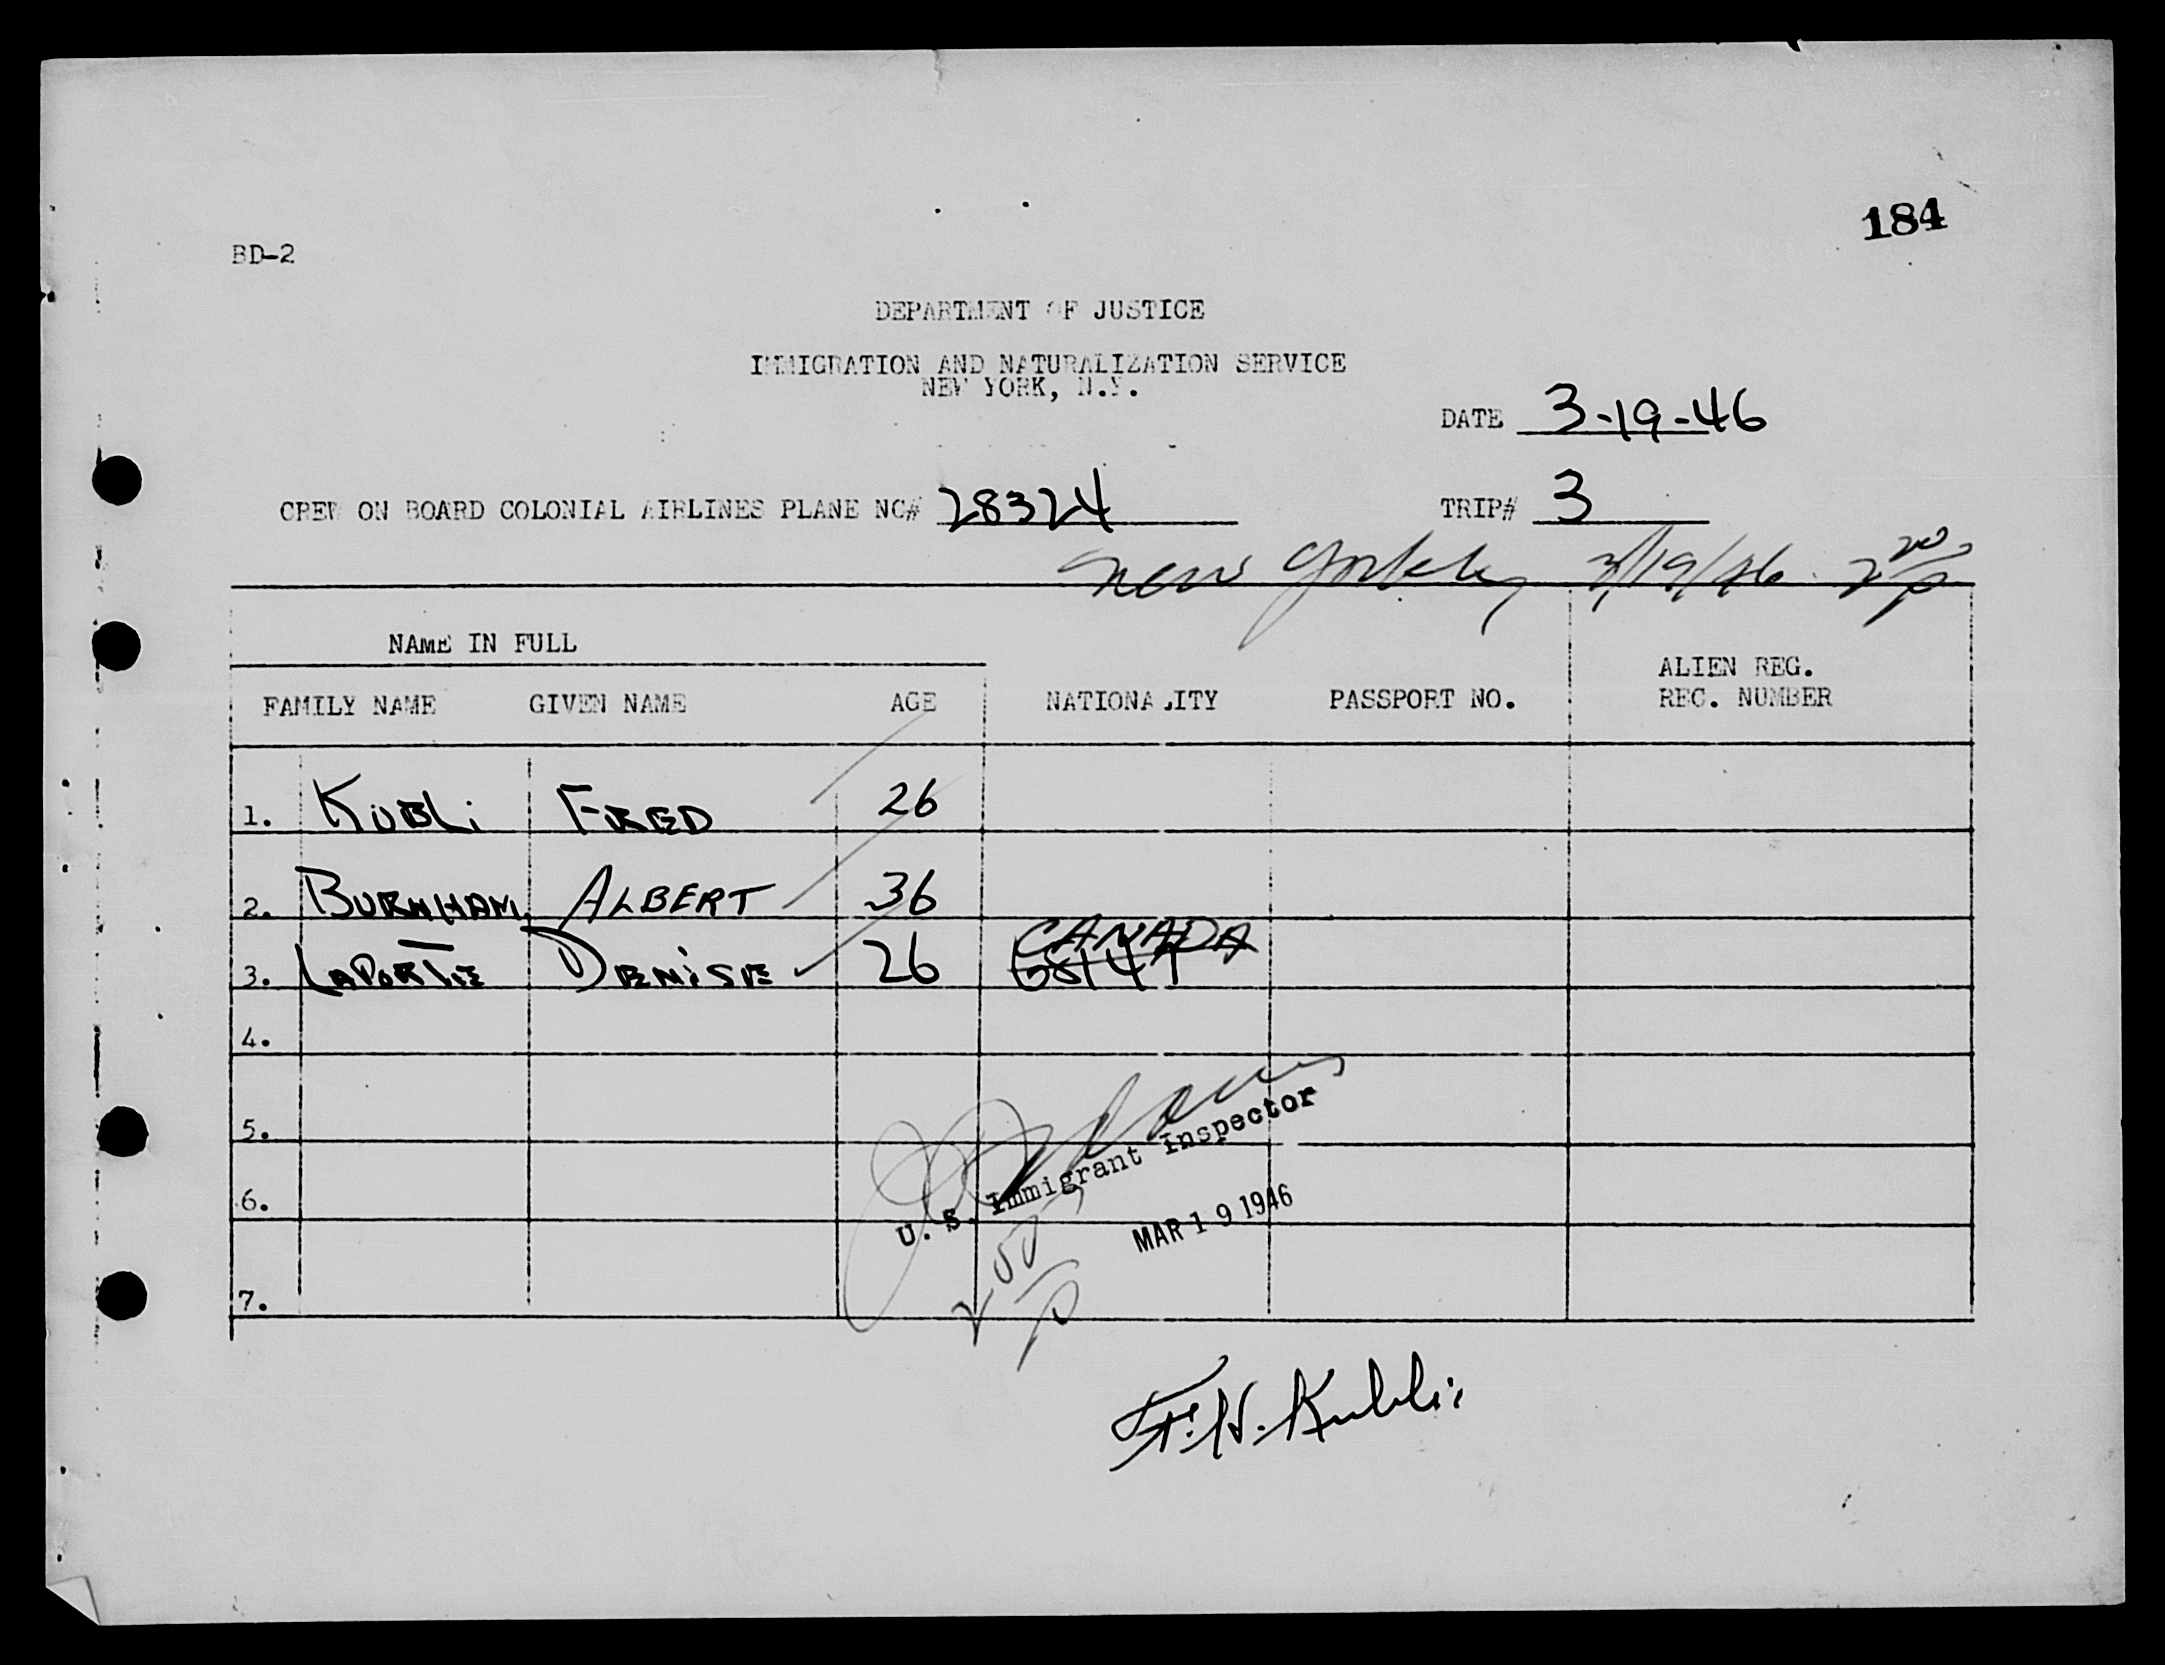 184
BD-2
DEPARTMENT OF JUSTICE
IMMIGRATION AND NATURALIZATION SERVICE
NEW YORK, N.Y.
DATE 3-19-46
CREW ON BOARD COLONIAL AIRLINES PLANE NO# 28324 TRIP# 3
New York 3/19/46
NAME IN FULL
FAMILY NAME GIVEN NAME AGE NATIONALITY PASSPORT NO. ALIEN REG. REC. NUMBER
1. KUBLi FRED 26
2. BURNHAM ALBERT 36
CANADA
3. LAPORTE DENISE 26
4.
5.
6.
7.
U. S. Immigrant Inspector
MAR 19 1946
F.H. Kubli